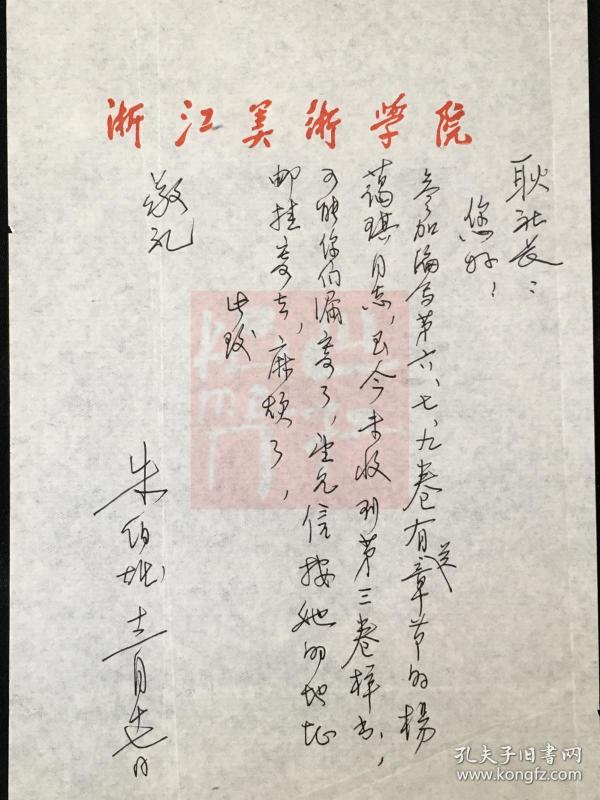 浙江美術学院
耿社长：
您好！
参加编写第六、七、九卷有关章节的杨
蔼琪同志，至今未收到第三卷样书，
可能你们漏寄了，望见信按她的地址
邮挂寄去，麻烦了，
此致
敬礼
朱伯雄 十二月 日
孔夫子旧书网
www.kongfz.com